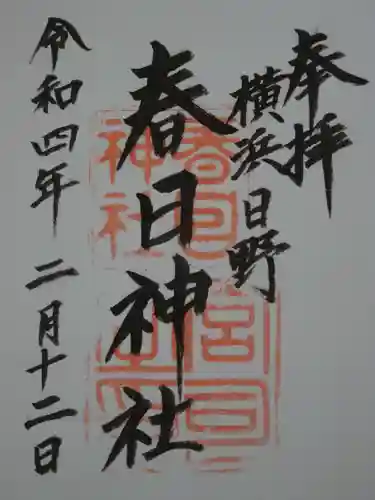 奉拝
横浜日野
春日神社
令和四年 二月十二日
春日
神社